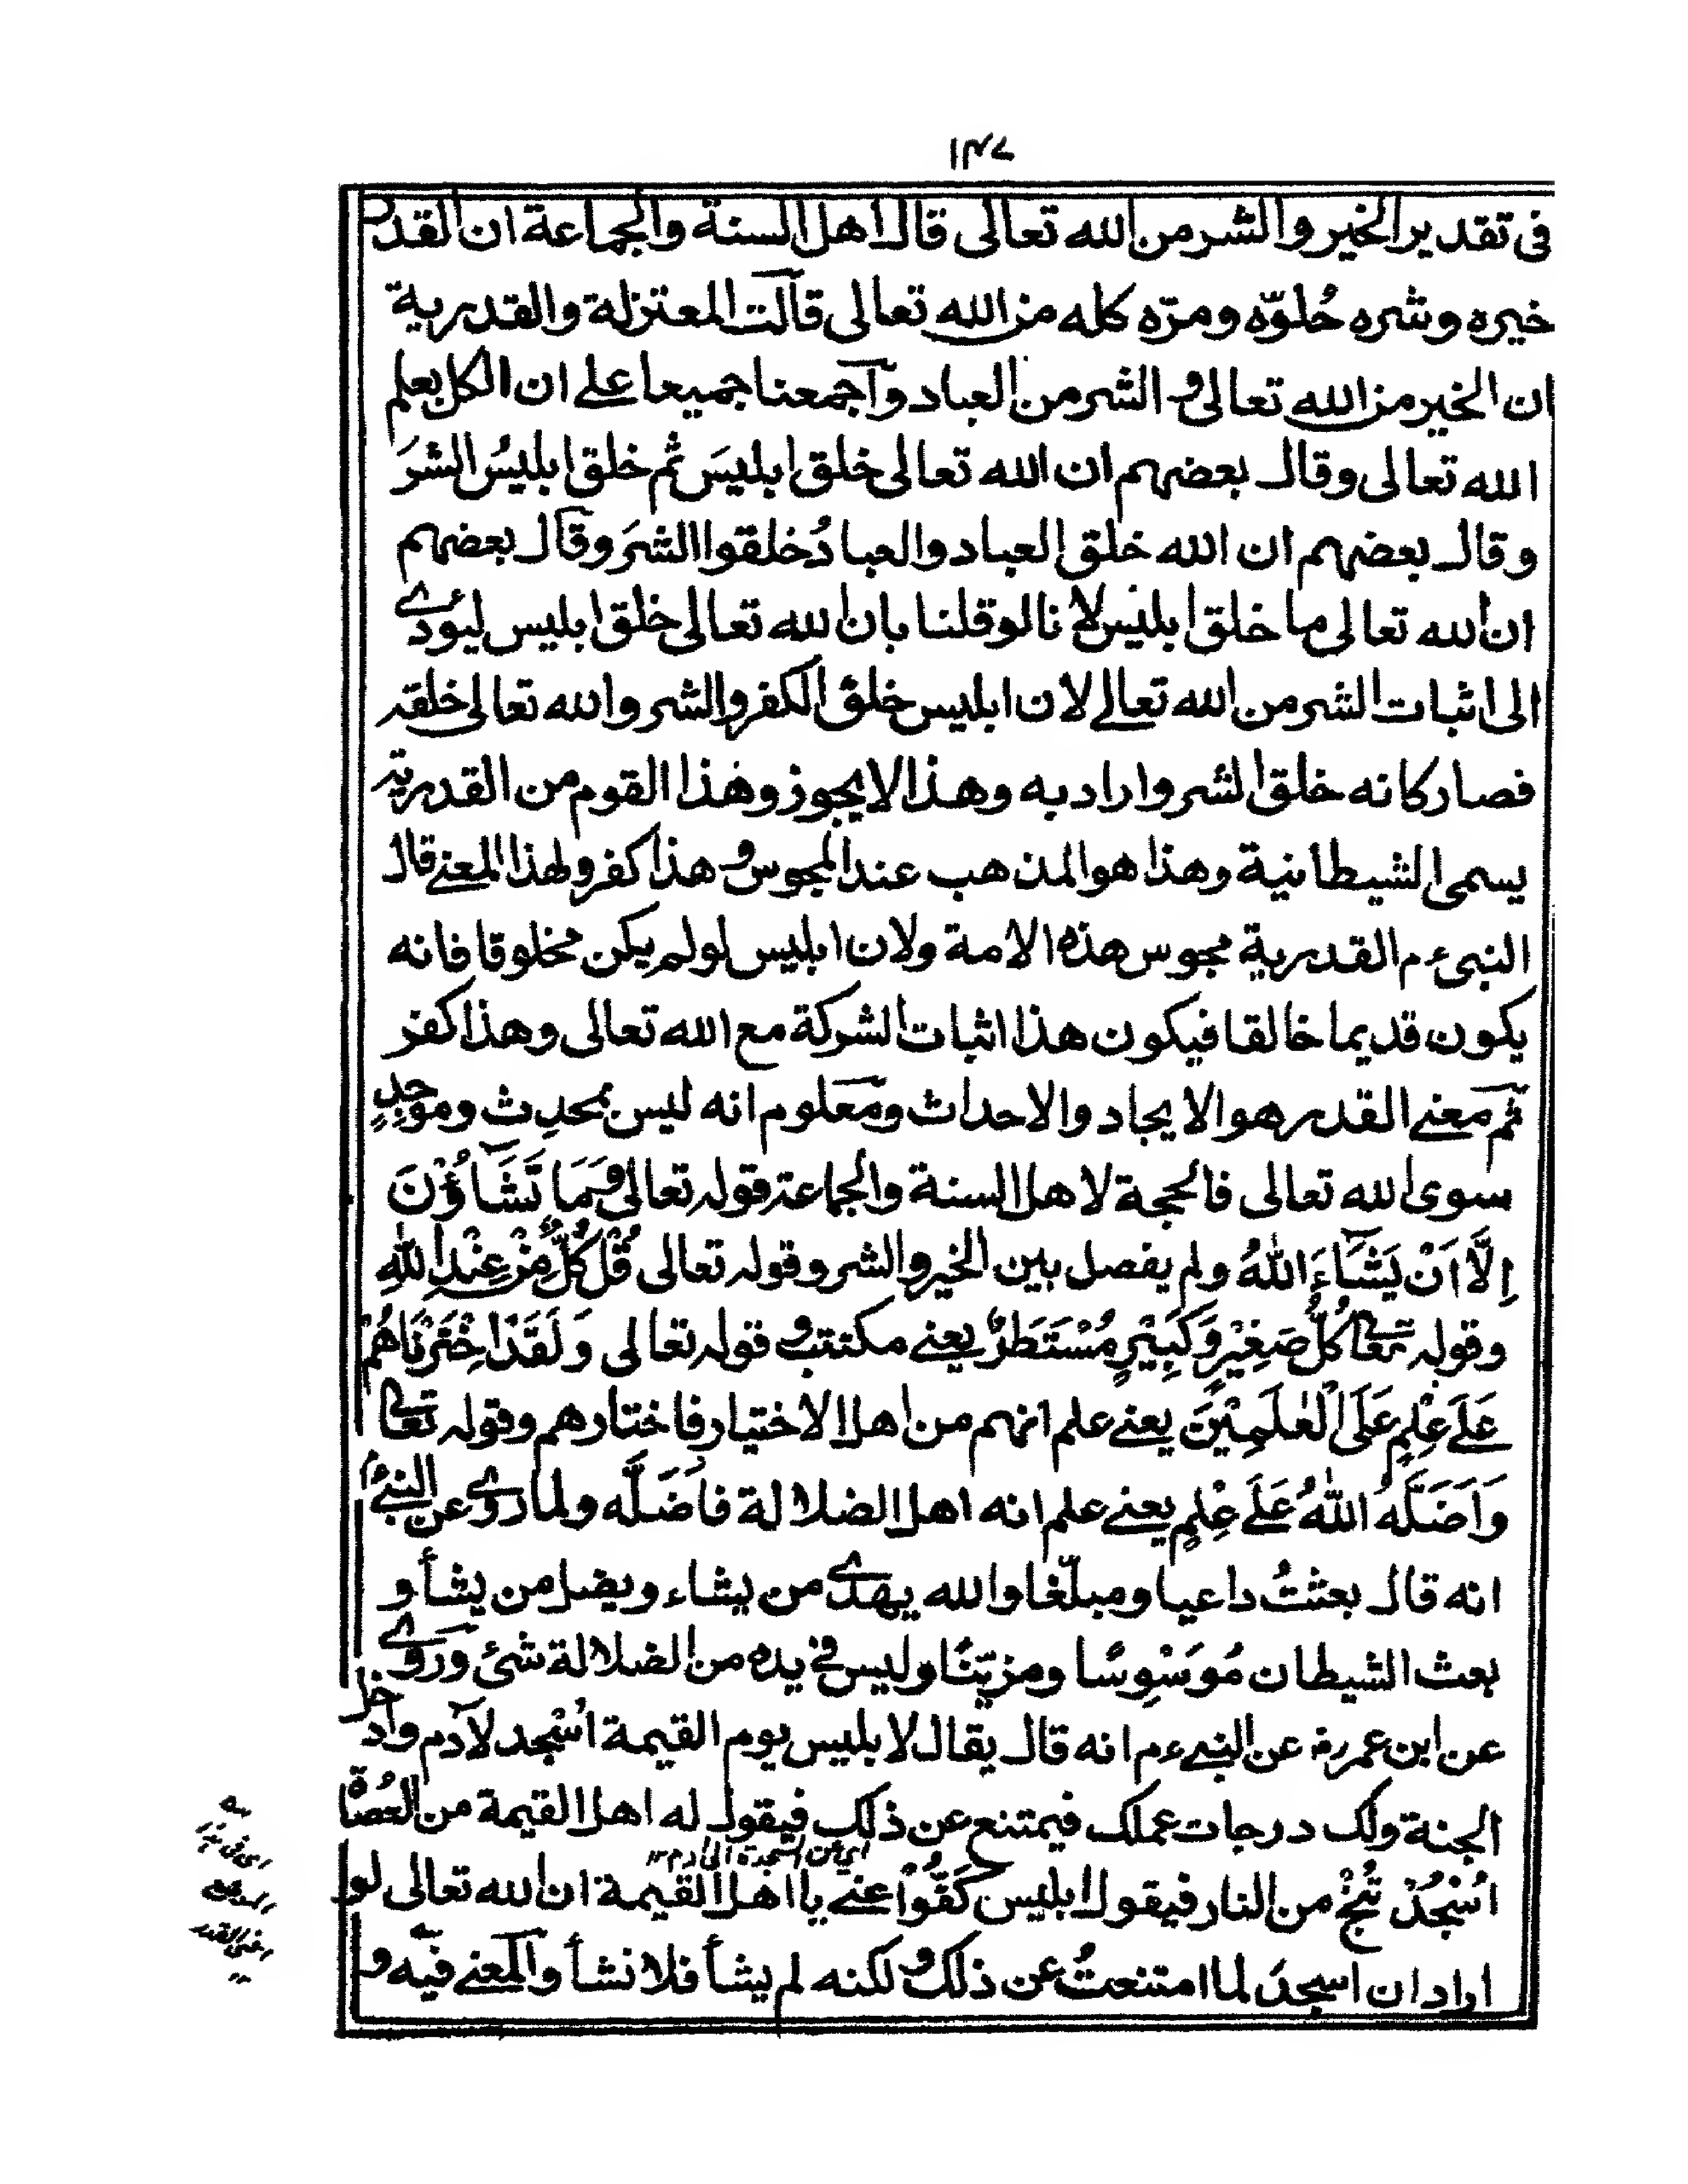 في تقدير الخير والشر من الله تعالى قال اهل السنة والجماعة ان القدر
خيره وشره حُلوّه ومرّه كله من الله تعالى قالت المعتزلة والقدرية
ان الخير من الله تعالى و الشر من العباد وآجمعنا جميعا على ان الكل بعلم
الله تعالى وقال بعضهم ان الله تعالى خلق ابليسَ ثم خلق ابليسُ الشرَ
وقال بعضهم ان الله خلق العباد والعبادُ خلقوا الشرَ وقال بعضهم
ان الله تعالى ما خلق ابليس لانا لو قلنا بان الله تعالى خلق ابليس ليؤدى
الى اثبات الشر من الله تعالى لان ابليس خلق الكفر والشر والله تعالى خلقه
فصار كانه خلق الشر واراد به وهذا لا يجوز وهذا القوم من القدرية
يسمى الشيطانية وهذا هو المذهب عند المجوس و هذا كفر ولهذا المعنى قال
النبى ء م القدرية مجوس هذه الامة ولان ابليس لو لم يكن مخلوقا فانه
يكون قديما خالقا فيكون هذا اثبات الشركة مع الله تعالى وهذا كفر
ثم معنى القدر هو الايجاد والاحداث ومعلوم انه ليس بمحدِث وموجِدٍ
سوى الله تعالى فالحجة لاهل السنة والجماعة قوله تعالى وَمَا تَشَاؤُنَ
اِلَّا اَنْ يَشَاءَ اللهُ ولم يفصل بين الخير والشر وقوله تعالى قُلْ كُلٌّ مِنْ عِنْدِ اللهِ
وقوله تعالى كُلُّ صَغِيْرٍ وَكَبِيْرٍ مُسْتَطَرٌ يعنى مكتتب و قوله تعالى وَلَقَدْ اخْتَرْنَاهُمْ
عَلَى عِلْمٍ عَلَى الْعٰلَمِيْنَ يعنى علم انهم من اهل الاختيار فاختارهم وقوله تعالى
وَاَضَلَّهُ اللهُ عَلَى عِلْمٍ يعنى علم انه اهل الضلالة فاَضَلَّه ولما روى عن النبىء م
انه قال بعثتُ داعيا ومبلّغا والله يهدى من يشاء ويضل من يشأ و
بعث الشيطان مُوَسْوِسًا ومزيّنًا وليس فى يده من الضلالة شئ وروى
عن ابن عمر رض عن النبى ء م انه قال يقال لابليس يوم القيمة اُسْجد لآدم وادخل
الجنة ولك درجات عملك فيمتنع عن ذلك فيقول له اهل القيمة من العُصاة
اى عن السجدة الى ادم ١٢
اُسْجُدْ تُنْجَ من النار فيقول ابليس كَفُّوْا عنى يا اهل القيمة ان الله تعالى لو
اراد ان اسجدَ لما امتنعتُ عن ذلك و لكنه لم يشأ فلا نشأ والمعنى فيه و